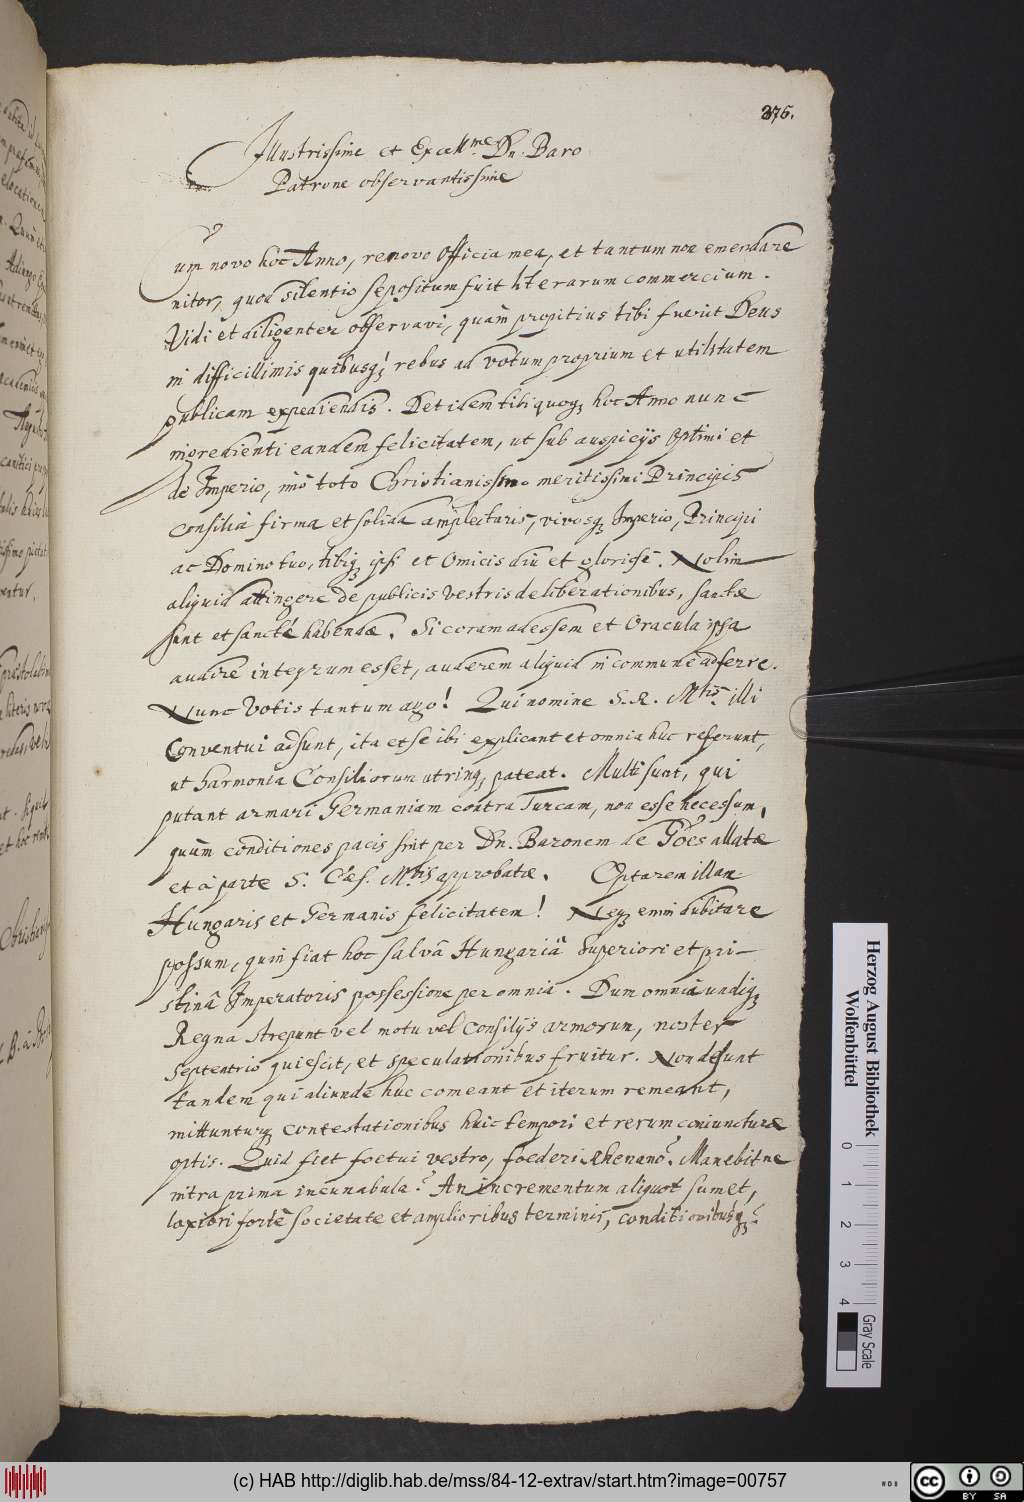 376.
Illustrissime et Excell.me Dn. Baro
Patrone observantissime
Cum novo hôc Anno, renovo Officia mea, et tantum non emendare
nitor, quod silentio sepositum fuit literarum commercium.
Vidi et diligenter observavi, quàm propitius tibi fuerit Deus
in difficillimis quibusq; rebus ad votum proprium et utilitatem
publicam expediendis. Det idem tibi quoq; hoc Anno nunc
ingredienti eandem felicitatem, ut sub auspicijs Optimi et
de Imperio, imò toto Christianissimo meritissimi Principis
consilia firma et solida amplectaris, vivosq; Imperio, Principi
ac Domino tuo, tibiq; ipsi et Amicis diu et gloriosè. Nolim
aliquid attingere de publicis vestris deliberationibus, sanctæ
sunt et sanctè habendæ. Si coram adessem et Oracula ipsa
audire integrum esset, auderem aliquid in commune adferre.
Nunc Votis tantum ago! Qui nomine S. R. M.tis illi
Conventui adsunt, ita et se ibi explicant et omnia huc referunt,
ut harmonia Consiliorum utrinq; pateat. Multi sunt, qui
putant armari Germaniam contra Turcam, non esse necessum,
quùm conditiones pacis sint per Dn. Baronem de Gŏes allatæ
et à parte S. Cæs. M.tis approbatæ. Optarem illam
Hungaris et Germanis felicitatem! Neq; enim dubitare
possum, quin fiat hoc salvâ Hungariâ Superiori et pri-
stinâ Imperatoris possessione per omnia. Dum omnia undiq;
Regna strepunt vel motu vel Consilijs armorum, noster
septentrio quiescit, et speculationibus fruitur. Non desunt
tandem qui aliunde huc comeant et iterum remeant,
mittunturq; contestationibus huic tempori et rerum coniuncturæ
aptis. Quid fiet foetui vestro, foederi Rhenano? Manebitne
intra prima incunabula? An incrementum aliquot sumet,
laxiori fortè societate et amplioribus terminis, conditionibusq;?
Herzog August Bibliothek
Wolfenbüttel
0 1 2 3 4
Gray Scale
(c) HAB http://diglib.hab.de/mss/84-12-extrav/start.htm?image=00757
cc BY SA